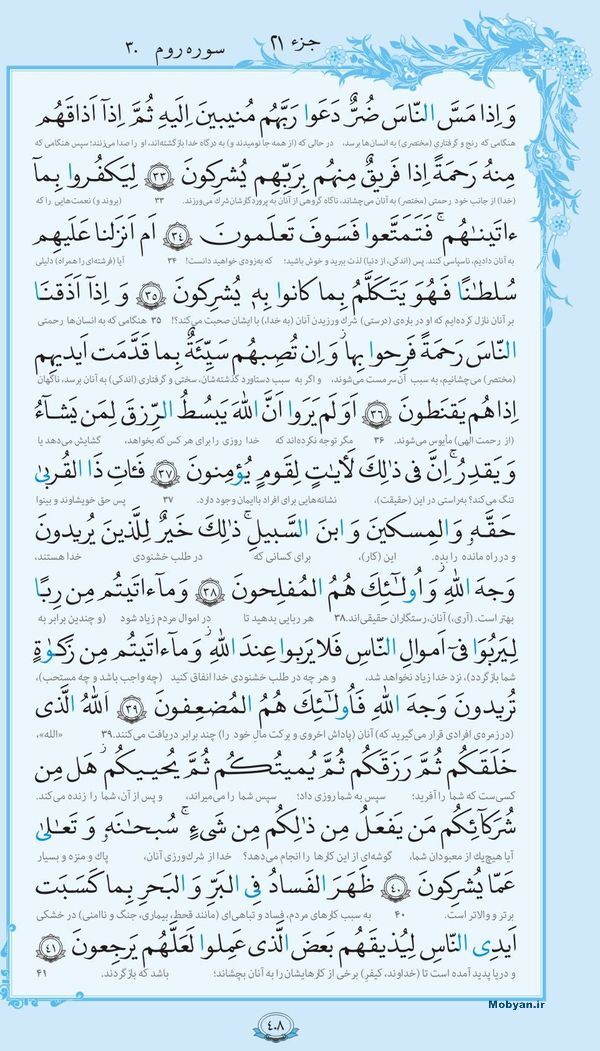 جزء ٢١
سوره روم ٣٠
وَ اِذا مَسَّ النّاسَ ضُرٌّ دَعَوا رَبَّهُم مُنيبينَ اِلَيهِ ثُمَّ اِذآ اَذاقَهُم
هنگامی که رنج و گرفتاری (مختصری) به انسان‌ها برسد، در حالی که (از همه جا نومیدند و) به درگاه خدا بازگشته‌اند، او را صدا می‌زنند؛ سپس هنگامی که
مِنهُ رَحمَةً اِذا فَريقٌ مِنهُم بِرَبِّهِم يُشرِكونَ ٣٣ لِيَكفُروا بِمآ
(خدا) از جانب خود رحمتی (مختصر) به آنان می‌چشاند، ناگاه گروهی از آنان به پروردگارشان شرك می‌ورزند. ٣٣ (بروند و) نعمت‌هایی را که
ءاتَينٰهُم ۚ فَتَمَتَّعوا فَسَوفَ تَعلَمونَ ٣٤ اَم اَنزَلنا عَلَيهِم
به آنان دادیم، ناسپاسی کنند. پس (اندکی، از دنیا) لذت ببرید و خوش باشید؛ که به‌زودی خواهید دانست! ٣٤ آیا (فرشته‌ای را همراه) دلیلی
سُلطٰنًا فَهُوَ يَتَكَلَّمُ بِما كانوا بِه۪ يُشرِكونَ ٣٥ وَ اِذآ اَذَقنَا
بر آنان نازل کرده‌ایم که او در باره‌ی (درستی) شرك ورزیدن آنان (به خدا)، با ایشان صحبت می‌کند؟! ٣٥ هنگامی که به انسان‌ها رحمتی
النّاسَ رَحمَةً فَرِحوا بِها ۖ وَ اِن تُصِبهُم سَيِّئَةٌ بِما قَدَّمَت اَيديهِم
(مختصر) می‌چشانیم، به سبب آن سرمست می‌شوند، و اگر به سبب دستاورد گذشته‌شان، سختی و گرفتاری (اندکی) به آنان برسد، ناگهان
اِذا هُم يَقنَطونَ ٣٦ اَوَلَم يَرَوا اَنَّ اللهَ يَبسُطُ الرِّزقَ لِمَن يَشآءُ
(از رحمت الهی) مأیوس می‌شوند. ٣٦ مگر توجه نکرده‌اند که خدا روزی را برای هر کس که بخواهد، گشایش می‌دهد یا
وَ يَقدِرُ ۚ اِنَّ فى ذٰلِكَ لَأٓيٰتٍ لِقَومٍ يُؤمِنونَ ٣٧ فَـٔاتِ ذَا القُربىٰ
تنگ می‌کند؟ به‌راستی در این (حقیقت)، نشانه‌هایی برای افراد باایمان وجود دارد. ٣٧ پس حق خویشاوند و بینوا
حَقَّهُۥ وَ المِسكينَ وَ ابنَ السَّبيلِ ۚ ذٰلِكَ خَيرٌ لِلَّذينَ يُريدونَ
و در راه مانده را بده. این (کار)، برای کسانی که در طلب خشنودی خدا هستند،
وَجهَ اللهِ ۖ وَ اُولٰٓئِكَ هُمُ المُفلِحونَ ٣٨ وَ مآ ءاتَيتُم مِن رِبًا
بهتر است. (آری،) آنان، رستگاران حقیقی‌اند. ٣٨ هر ربایی بدهید تا در اموال مردم زیاد شود (و چندین برابر به
لِيَربُوَا فى اَموالِ النّاسِ فَلا يَربوا عِندَ اللهِ ۖ وَ مآ ءاتَيتُم مِن زَكوٰةٍ
شما بازگردد)، نزد خدا زیاد نخواهد شد، و هر چه در طلب خشنودی خدا انفاق کنید (چه واجب باشد و چه مستحب)،
تُريدونَ وَجهَ اللهِ فَاُولٰٓئِكَ هُمُ المُضعِفونَ ٣٩ اَللهُ الَّذى
(در زمره‌ی افرادی قرار می‌گیرید که) آنان (پاداش اخروی و برکت مال خود را) چند برابر دریافت می‌کنند. ٣٩ «الله»،
خَلَقَكُم ثُمَّ رَزَقَكُم ثُمَّ يُميتُكُم ثُمَّ يُحييكُم ۖ هَل مِن
کسی‌ست که شما را آفرید؛ سپس به شما روزی داد؛ سپس شما را می‌میراند، و پس از آن، شما را زنده می‌کند.
شُرَكآئِكُم مَن يَفعَلُ مِن ذٰلِكُم مِن شَىءٍ ۚ سُبحٰنَهُۥ وَ تَعالىٰ
آیا هیچ‌یك از معبودان شما، گوشه‌ای از این کارها را انجام می‌دهد؟ خدا از شرك‌ورزی آنان، پاك و منزه و بسیار
عَمّا يُشرِكونَ ٤٠ ظَهَرَ الفَسادُ فِى البَرِّ وَ البَحرِ بِما كَسَبَت
برتر و والاتر است. ٤٠ به سبب کارهای مردم، فساد و تباهی‌ای (مانند قحط، بیماری، جنگ و ناامنی) در خشکی
اَيدِى النّاسِ لِيُذيقَهُم بَعضَ الَّذى عَمِلوا لَعَلَّهُم يَرجِعونَ ٤١
و دریا پدید آمده است تا (خداوند، کیفرِ) برخی از کارهایشان را به آنان بچشاند؛ باشد که بازگردند. ٤١
Mobyan.ir
٤٠٨